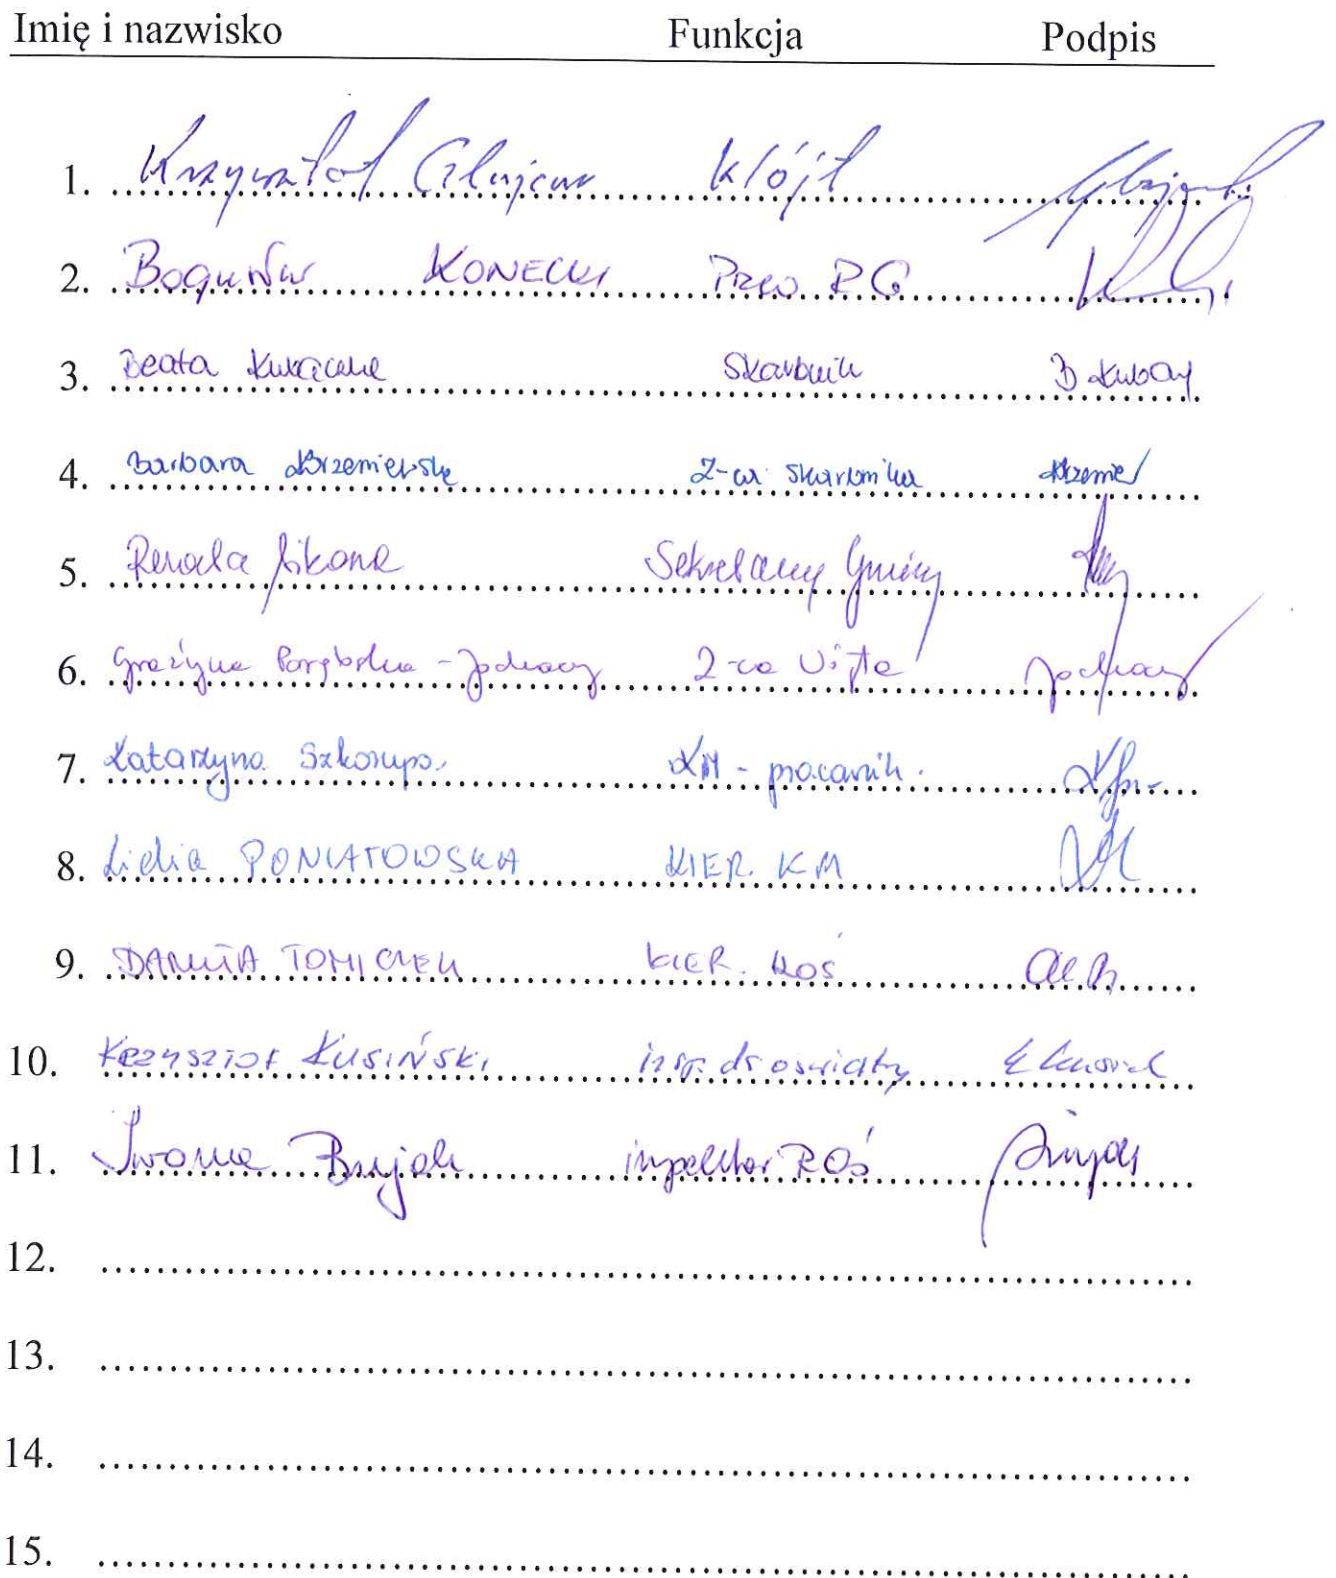 Imię i nazwisko Funkcja Podpis
1. Krzysztof Wójt
2. Bogusław KONECKI PRZEW RG
3. Beata Skarbnik
4. Barbara Krzemieńska Z-ca Skarbnika Krzemie
5. Renata Sikora Sekretarz Gminy
6. Grażyna Porębska-Jochacy Z-ca Wójta Jochacy
7. Katarzyna KM - pracownik.
8. Lidia PONIATOWSKA KIER. KM
9. DANUTA TOMICZEK KIER. ROŚ
10. KRZYSZTOF KUSIŃSKI insp. ds oświaty
11. Iwona Bujak inspektor ROŚ Bujak
12.
13.
14.
15.